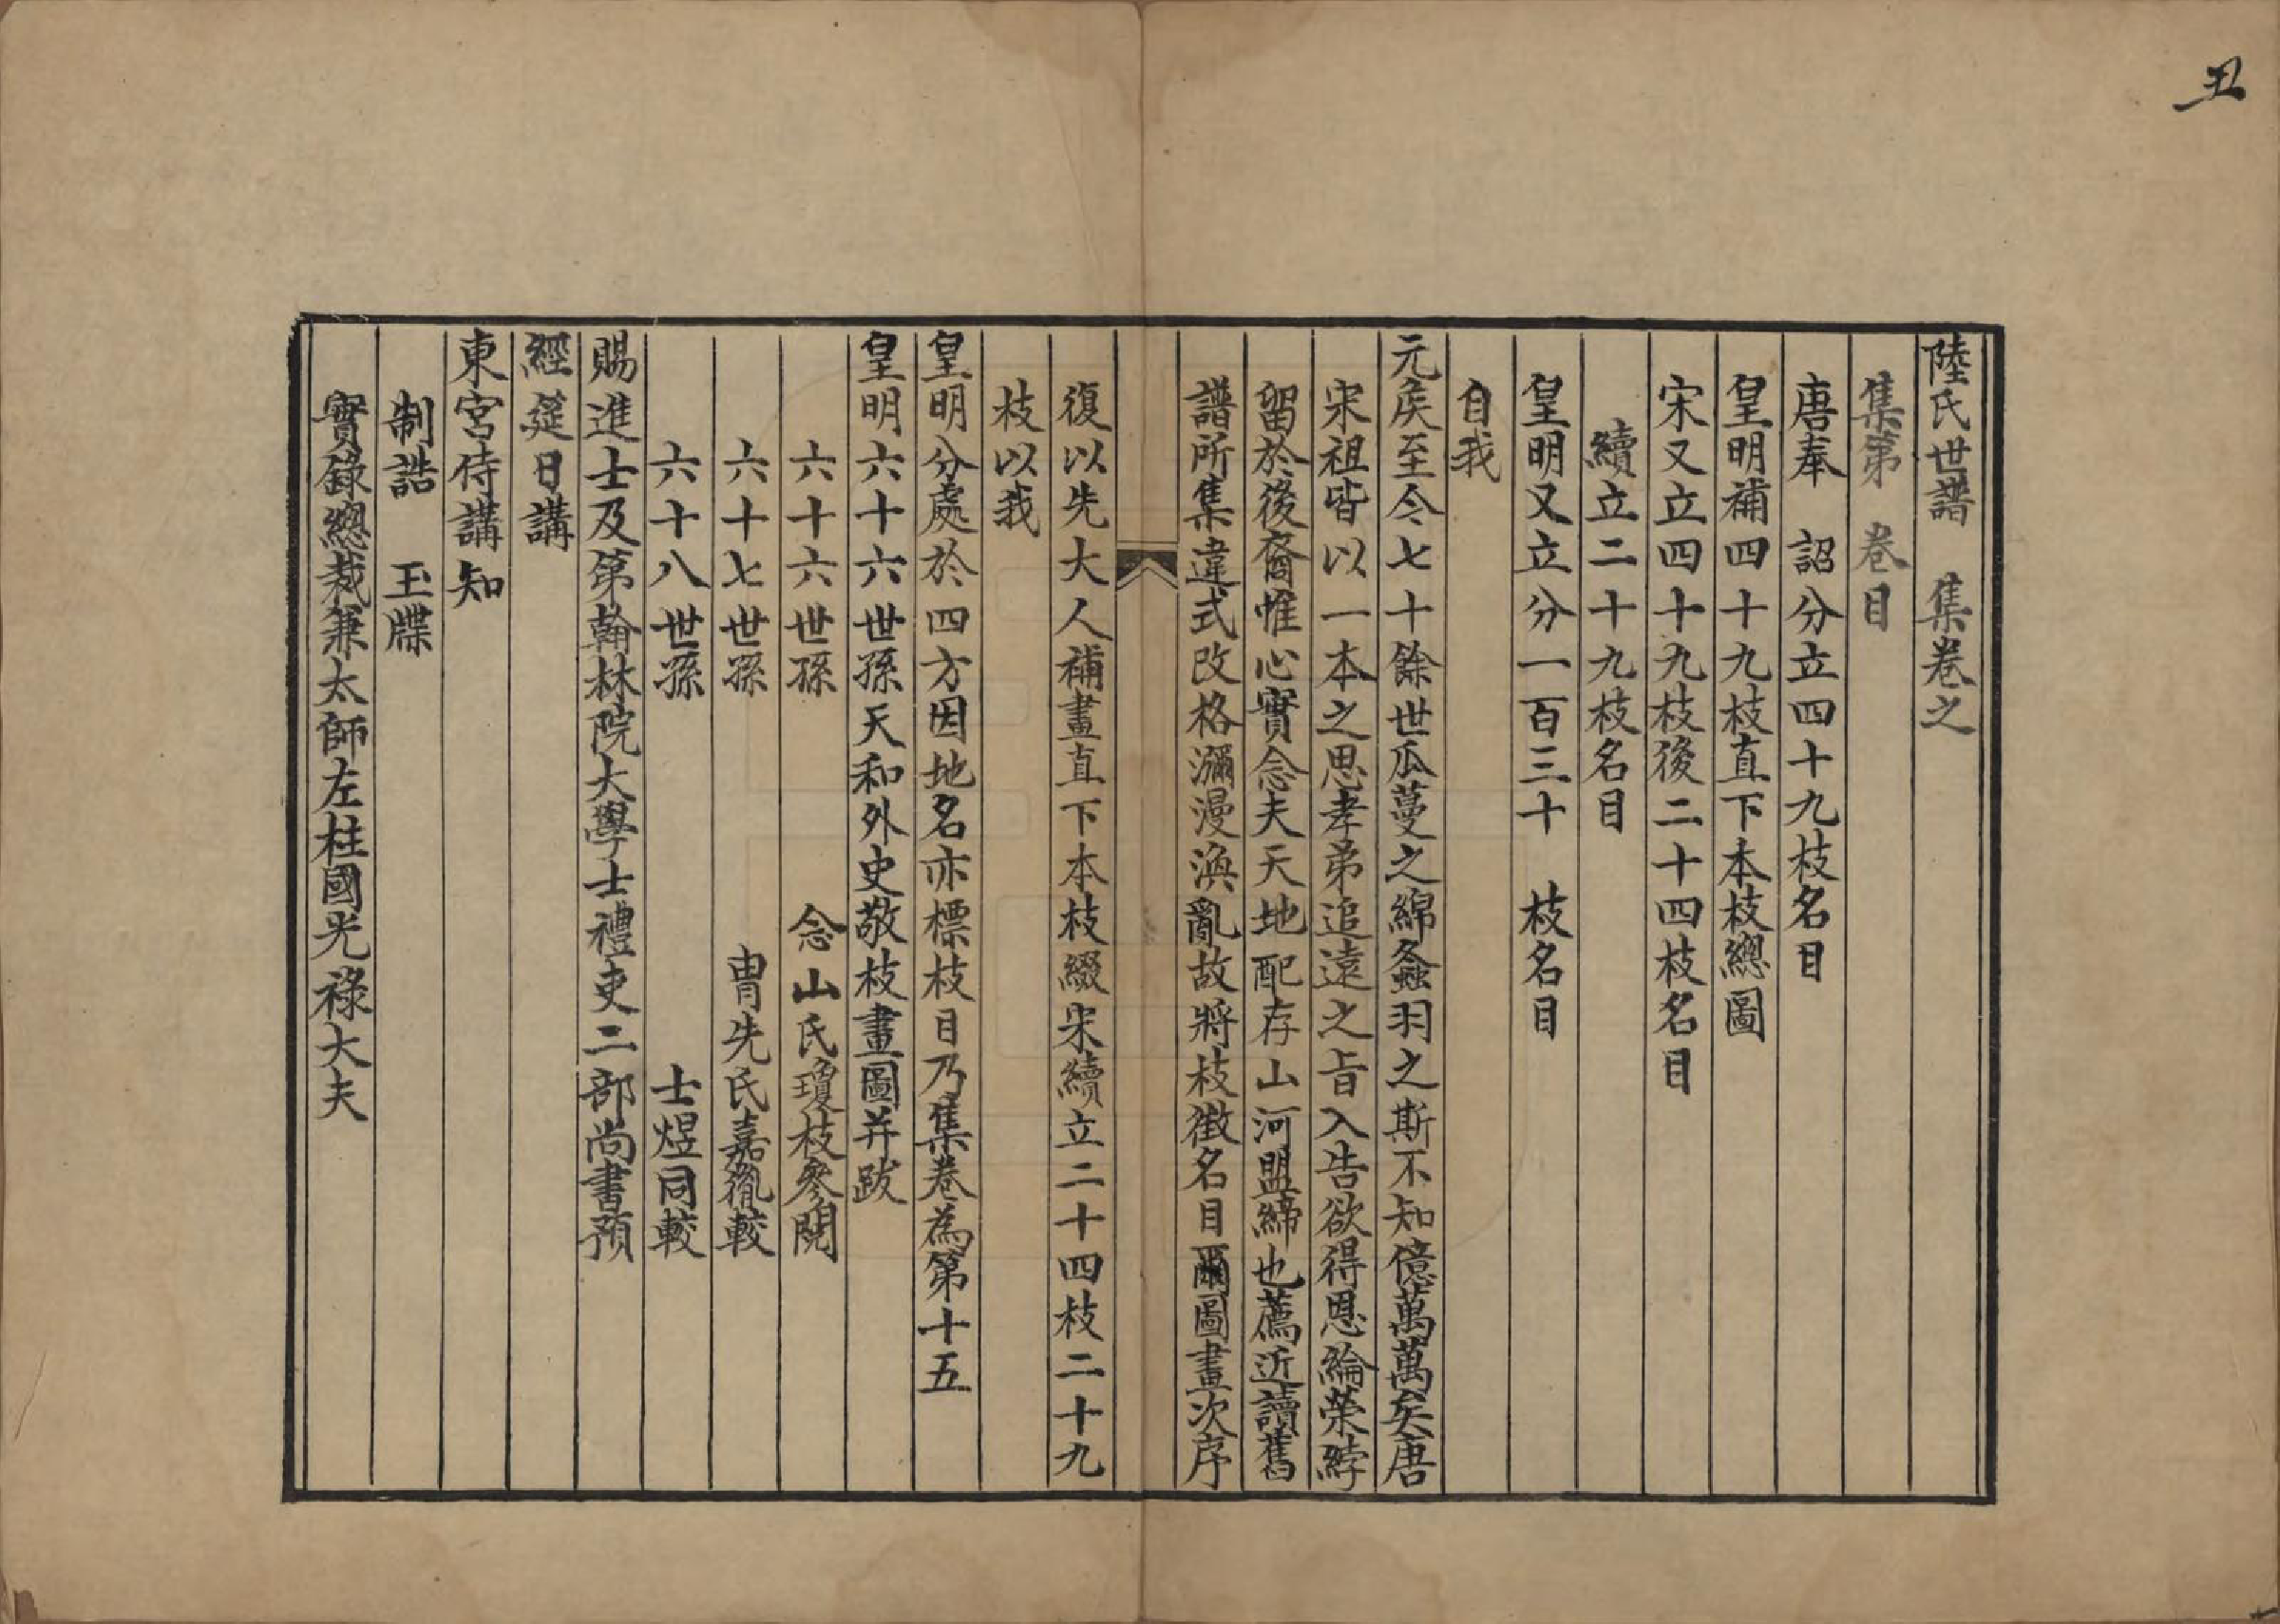 丑
陸氏世譜　集卷之
集第　卷目
唐奉　詔分立四十九枝名目
皇明補四十九枝直下本枝總圖
宋又立四十九枝後二十四枝名目
續立二十九枝名目
皇明又立分一百三十　枝名目
自我
元矦至今七十餘世瓜蔓之綿螽羽之斯不知億萬萬矣唐
宋祖皆以一本之思孝弟追遠之旨入告欲得恩綸榮綍
留於後裔惟心實念夫天地配存山河盟締也薦近讀舊
譜所集違式改格瀰漫渙亂故將枝徵名目爾圖畫次序
復以先大人補畫直下本枝綴宋續立二十四枝二十九
枝以我
皇明分處於四方因地名亦標枝目乃集卷為第十五
皇明六十六世孫天和外史敬枝畫圖并跋
六十六世孫　念山氏瓊枝參閱
六十七世孫　胄先氏嘉胤較
六十八世孫　士煜同較
賜進士及第翰林院大學士禮吏二部尚書預
經筵日講
東宮侍講知
制誥　玉牒
實錄總裁兼太師左柱國光祿大夫